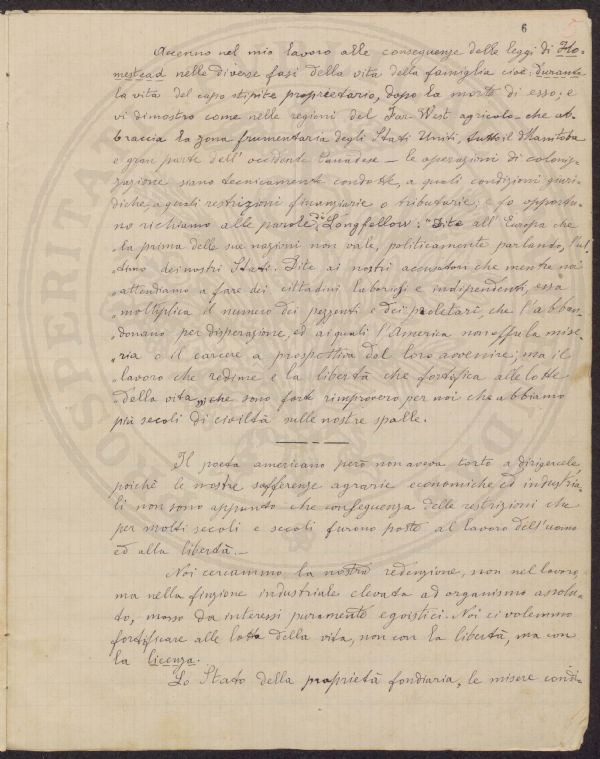 6
Accenno nel mio lavoro alle conseguenze delle leggi di Ho-
mestead nelle diverse fasi della vita della famiglia cioè: durante
la vita del capo stipite proprietario, dopo la morte di esso; e
vi dimostro come nelle regioni del Far-West agricolo che ab-
braccia la zona frumentaria degli Stati Uniti, tutto il Manitoba
e gran parte dell'occidente Canadese — le operazioni di coloniz-
zazione siano tecnicamente condotte, a quali condizioni giuri-
diche, a quali restrizioni finanziarie o tributarie; e fo opportu-
no richiamo alle parole di Longfellow: "Dite all'Europa che
"la prima delle sue nazioni non vale, politicamente parlando, l'ul-
"timo dei nostri Stati. Dite ai nostri accusatori che mentre noi
"attendiamo a fare dei cittadini laboriosi e indipendenti, essa
"moltiplica il numero dei pezzenti e dei proletari, che l'abban-
"donano per disperazione, ed ai quali l'America non offre la mise-
"ria o il carcere a prospettiva del loro avvenire; ma il
"lavoro che redime e la libertà che fortifica alle lotte
"della vita", che sono forte rimprovero per noi che abbiamo
più secoli di civiltà sulle nostre spalle.
Il poeta americano però non aveva torto a dirigercele,
poiché le nostre sofferenze agrarie economiche ed industria-
li non sono appunto che conseguenza delle restrizioni che
per molti secoli e secoli furono poste al lavoro dell'uomo
ed alla libertà.—
Noi cercammo la nostra redenzione, non nel lavoro
ma nella finzione industriale elevata ad organismo assolu-
to, mosso da interessi puramente egoistici. Noi ci volemmo
fortificare alle lotte della vita, non con la libertà, ma con
la licenza.
Lo Stato della proprietà fondiaria, le misere condi-